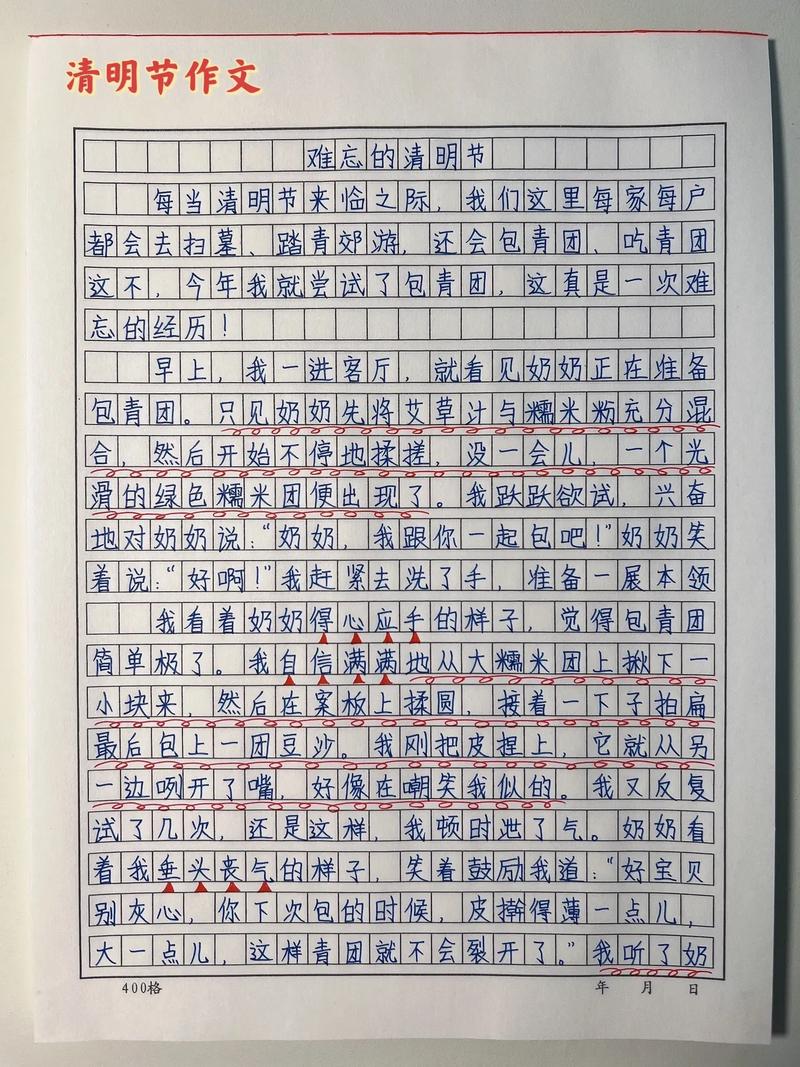 清明节作文
难忘的清明节
每当清明节来临之际，我们这里每家每户
都会去扫墓、踏青郊游，还会包青团、吃青团
这不，今年我就尝试了包青团，这真是一次难
忘的经历！
早上，我一进客厅，就看见奶奶正在准备
包青团。只见奶奶先将艾草汁与糯米粉充分混
合，然后开始不停地揉搓，没一会儿，一个光
滑的绿色糯米团便出现了。我跃跃欲试，兴奋
地对奶奶说：“奶奶，我跟你一起包吧！”奶奶笑
着说：“好啊！”我赶紧去洗了手，准备一展本领
我看着奶奶得心应手的样子，觉得包青团
简单极了。我自信满满地从大糯米团上揪下一
小块来，然后在案板上揉圆，接着一下子拍扁
最后包上一团豆沙。我刚把皮捏上，它就从另
一边咧开了嘴，好像在嘲笑我似的。我又反复
试了几次，还是这样，我顿时泄了气。奶奶看
着我垂头丧气的样子，笑着鼓励我道：“好宝贝
别灰心，你下次包的时候，皮擀得薄一点儿，
大一点儿，这样青团就不会裂开了。”我听了奶
400格
年 月 日